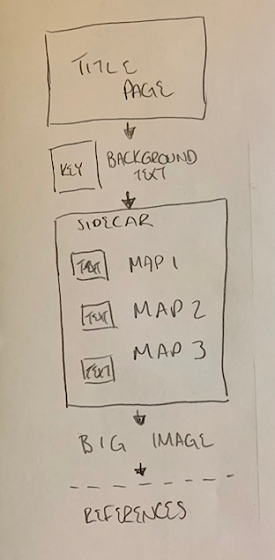 TITLE
PAGE
KEY
BACKGROUND
TEXT
SIDECAR
TEXT MAP 1
TEXT MAP 2
MAP 3
TEXT
BIG IMAGE
REFERENCES